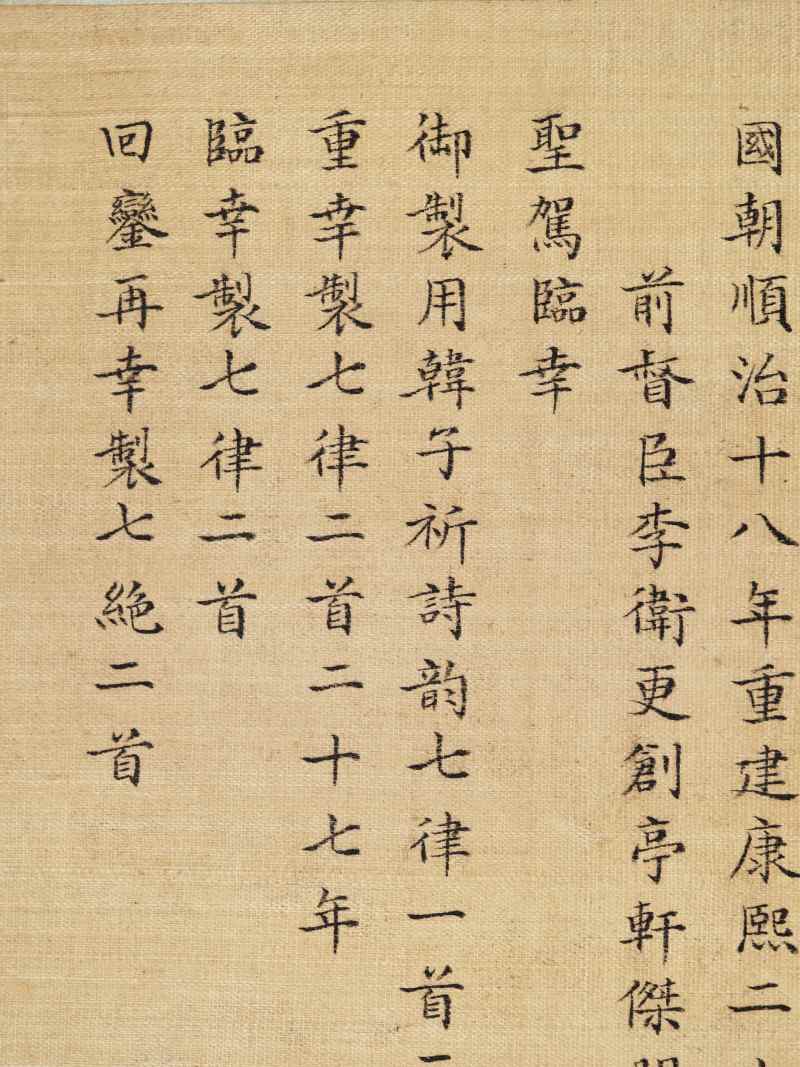 國朝順治十八年重建康熙二
前督臣李衛更創亭軒傑
聖駕臨幸
御製用韓子祈詩韵七律一首
重幸製七律二首二十七年
臨幸製七律二首
回鑾再幸製七絶二首